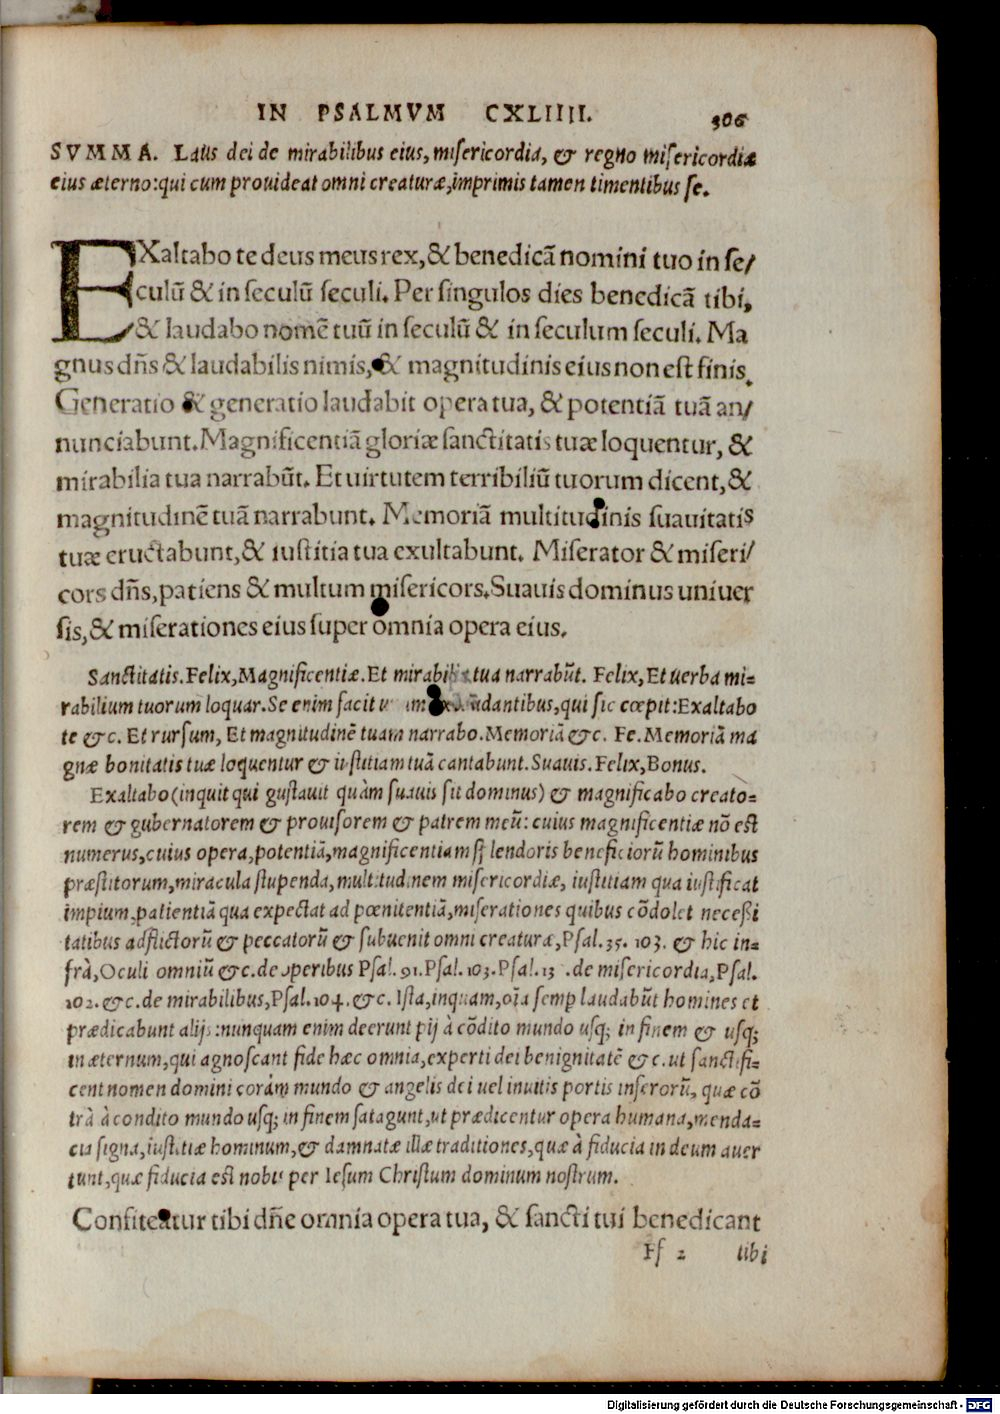 IN PSALMVM CXLIIII. 306
SVMMA. Laus dei de mirabilibus eius, misericordia, & regno misericordiæ
eius æterno: qui cum prouideat omni creaturæ, imprimis tamen timentibus se.
EXaltabo te deus meus rex, & benedicā nomini tuo in se/
culū & in seculū seculi. Per singulos dies benedicā tibi,
& laudabo nomē tuū in seculū & in seculum seculi. Ma
gnus dn̄s & laudabilis nimis, & magnitudinis eius non est finis.
Generatio & generatio laudabit opera tua, & potentiā tuā an/
nunciabunt. Magnificentiā gloriæ sanctitatis tuæ loquentur, &
mirabilia tua narrabūt. Et uirtutem terribiliū tuorum dicent, &
magnitudinē tuā narrabunt. Memoriā multitudinis suauitatis
tuæ eructabunt, & iustitia tua exultabunt. Miserator & miseri/
cors dn̄s, patiens & multum misericors. Suauis dominus uniuer
sis, & miserationes eius super omnia opera eius.
Sanctitatis. Felix, Magnificentiæ. Et mirabilia tua narrabūt. Felix, Et uerba mi=
rabilium tuorum loquar. Se enim facit laudantibus, qui sic cœpit: Exaltabo
te &c. Et rursum, Et magnitudinē tuam narrabo. Memoriā &c. Fe. Memoriā ma
gnæ bonitatis tuæ loquentur & iustitiam tuā cantabunt. Suauis. Felix, Bonus.
Exaltabo (inquit qui gustauit quàm suauis sit dominus) & magnificabo creato=
rem & gubernatorem & prouisorem & patrem meū: cuius magnificentiæ nō est
numerus, cuius opera, potentiā, magnificentiam splendoris beneficiorū hominibus
præstitorum, miracula stupenda, multitudinem misericordiæ, iustitiam qua iustificat
impium, patientiā qua expectat ad pœnitentiā, miserationes quibus cōdolet necessi
tatibus adflictorū & peccatorū & subuenit omni creaturæ, Psal. 35. 103. & hic in=
frà, Oculi omniū &c. de operibus Psal. 91. Psal. 103. Psal. 13 . de misericordia, Psal.
102. &c. de mirabilibus, Psal. 104. &c. Ista, inquam, oīa semp laudabūt homines et
prædicabunt alijs: nunquam enim deerunt pij à cōdito mundo usq; in finem & usq;
in æternum, qui agnoscant fide hæc omnia, experti dei benignitatē &c. ut sanctifi=
cent nomen domini corám mundo & angelis dei uel inuitis portis inferorū, quæ cō
trà à condito mundo usq; in finem satagunt, ut prædicentur opera humana, menda=
cia signa, iustitiæ hominum, & damnatæ illæ traditiones, quæ à fiducia in deum auer
tunt, quæ fiducia est nobis per Iesum Christum dominum nostrum.
Confiteātur tibi dn̄e omnia opera tua, & sancti tui benedicant
Ff 2 tibi
Digitalisierung gefördert durch die Deutsche Forschungsgemeinschaft - DFG